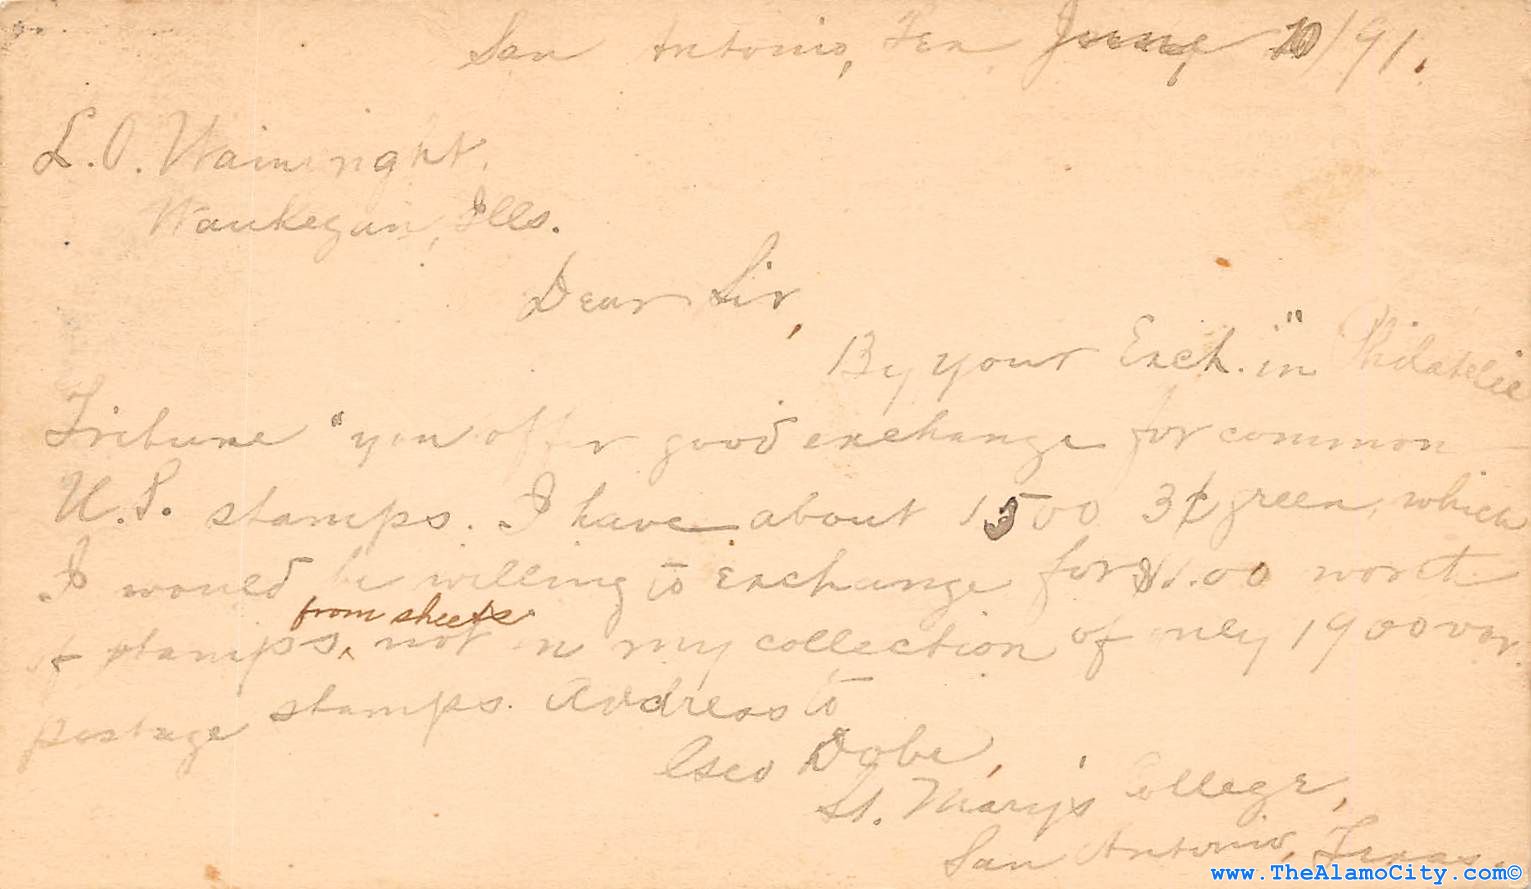 San Antonio, Tex, June 10/91.
L. O. Wainwright,
Waukegan, Ills.
Dear Sir,
By your Exch. in " Philatelic
Tribune " you offer good exchange for common
U.S. stamps. I have about 1500 3¢ green, which
I would be willing to exchange for $1.00 worth
from sheets
of stamps, not in my collection of only 1900 var.
postage stamps. Address to
Dobe,
St. Mary's College,
San Antonio, Texas.
www.TheAlamoCity.com©